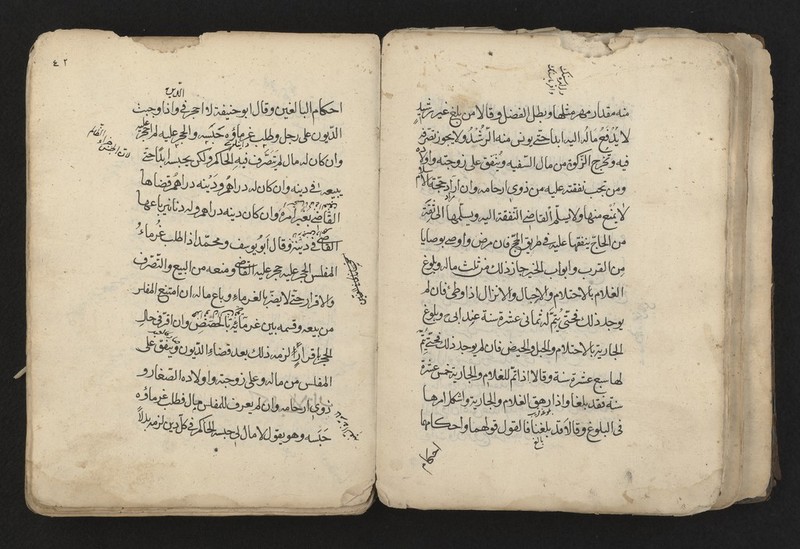 منه مقدار مهر مثلها وبطل الفضل وقالا من بلغ غير رشيد
لا يدفع ماله اليه ابدا حتى يونس منه الرشد ولا يجوز تصرفه
فيه وتخرج الزكوة من مال السفيه وينفق على زوجته واولاده
ومن تجب نفقته عليه من ذوى ارحامه وان اراد حجة الاسلام
لا يمنع منها ولا يسلم القاضى النفقة اليه ويسلمها الى ثقة
من الحاج ينفقها عليه فى طريق الحج فان مرض واوصى بوصايا
من القرب وابواب الخير جاز ذلك من ثلث ماله وبلوغ
الغلام بالاحتلام والاحبال والانزال اذا وطئ فان لم
يوجد ذلك فحتى يتم له ثمانى عشرة سنة عند ابى ح وبلوغ
الجارية بالاحتلام والحبل والحيض فان لم يوجد ذلك فحتى يتم
لها سبع عشرة سنة وقالا اذا تم للغلام والجارية خمس عشرة
سنة فقد بلغا واذا رهق الغلام والجارية واشكل امرهما
فى البلوغ وقالا قد بلغنا فالقول قولهما واحكامها
بالغ
احكام
٤٢
الدين
احكام البالغين وقال ابو حنيفة لا احجر فى واذا وجبت
الديون على رجل وطلب غرماؤه حبسه والحجر عليه لم احجر عليه
وان كان له مال لم يتصرف فيه الحاكم ولكن يحبسه ابدا حتى
يبيعه فى دينه وان كان له دراهم ودينه دراهم قضاها
القاضى بغير امره وان كان دينه دراهم وله دنانير باعها
القاضى فى دينه وقال ابو يوسف ومحمد اذا طلب غرماء
المفلس الحجر عليه حجر عليه القاضى ومنعه من البيع والتصرف
والاقرار حتى لا يضر بالغرماء وباع ماله ان امتنع المفلس
من بيعه وقسمه بين غرمائه بالحصص وان اقر فى حال
الحجر باقرار لزمه ذلك بعد قضاء الديون وينفق على
المفلس من ماله وعلى زوجته واولاده الصغار و
ذوى ارحامه وان لم يعرف للمفلس مال فطلب غرماؤه
حبسه وهو يقول لا مال لى حبسه الحاكم فى كل دين لزمه بدلا